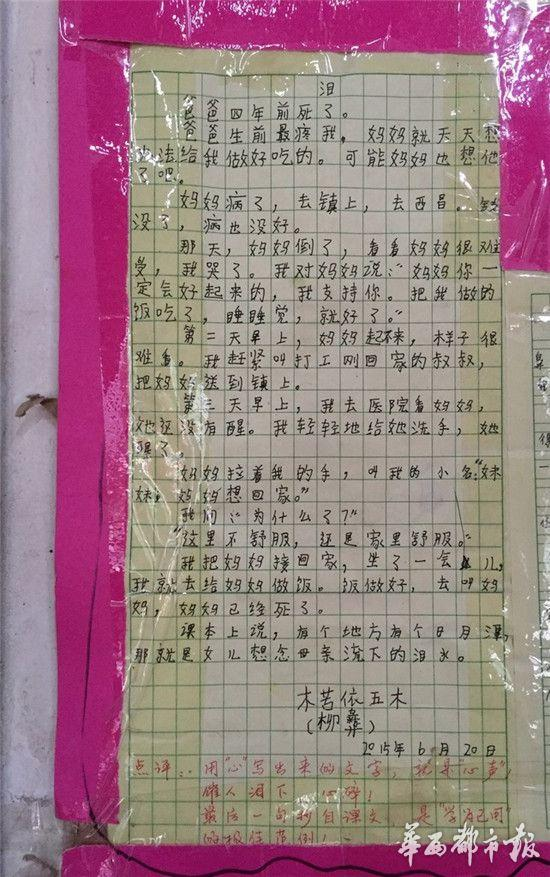 泪
爸爸四年前死了。
爸爸生前最疼我，妈妈就天天想
办法给我做好吃的。可能妈妈也想他
了吧。
妈妈病了，去镇上，去西昌。钱
没了，病也没好。
那天，妈妈倒了，看看妈妈很难
受，我哭了。我对妈妈说：“妈妈你一
定会好起来的，我支持你。把我做的
饭吃了，睡睡觉，就好了。”
第二天早上，妈妈起不来，样子很
难看。我赶紧叫打工刚回家的叔叔，
把妈妈送到镇上。
第三天早上，我去医院看妈妈，
她还没有醒。我轻轻地给她洗手，她
醒了。
妈妈拉着我的手，叫我的小名：“妹
妹，妈妈想回家。”
我问：“为什么了？”
“这里不舒服，还是家里舒服。”
我把妈妈接回家，坐了一会儿，
我就去给妈妈做饭。饭做好，去叫妈
妈，妈妈已经死了。
课本上说，有个地方有个日月潭，
那就是女儿想念母亲流下的泪水。
木苦依五木
（柳彝）
2015年6月20日
点评：用“心”写出来的文字，就是“心声”，
催人泪下 心碎！
最后一句抄自课文，是“学为己用”
的极佳范例！
华西都市报